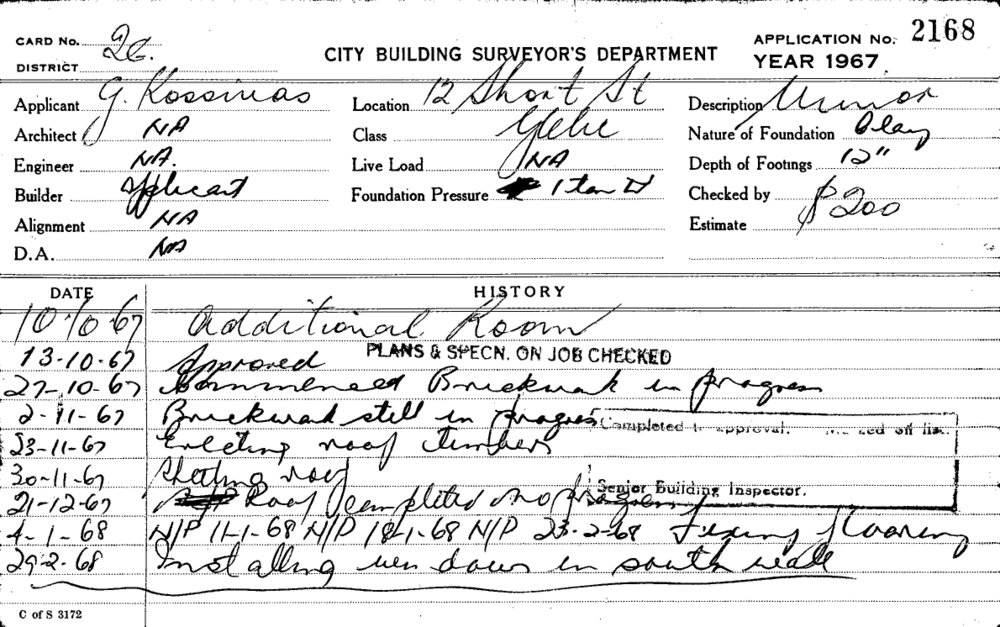 CARD No. 26.
DISTRICT
CITY BUILDING SURVEYOR'S DEPARTMENT
APPLICATION No. 2168
YEAR 1967
Applicant G. Kossivas
Location 12 Short St
Description Minor
Architect NA
Class Glebe
Nature of Foundation Clay
Engineer NA.
Live Load NA
Depth of Footings 12"
Builder Applicant
Foundation Pressure 1 ton
Checked by
Alignment NA
Estimate $200
D.A. NA
DATE HISTORY
10.10.67 Additional Room
13-10-67 Approved PLANS & SPECN. ON JOB CHECKED
27-10-67 Commenced Brickwork in progress
2-11-67 Brickwork still in progress
Completed to approval. led off list.
23-11-67 Erecting roof timbers
30-11-67 Sheeting roof
Senior Building Inspector.
21-12-67 Roof Completed no progress
4-1-68 N/P 11-1-68 N/P 18-1-68 N/P 23-2-68 Fixing flooring
29-2-68 Installing windows in south wall
C of S 3172